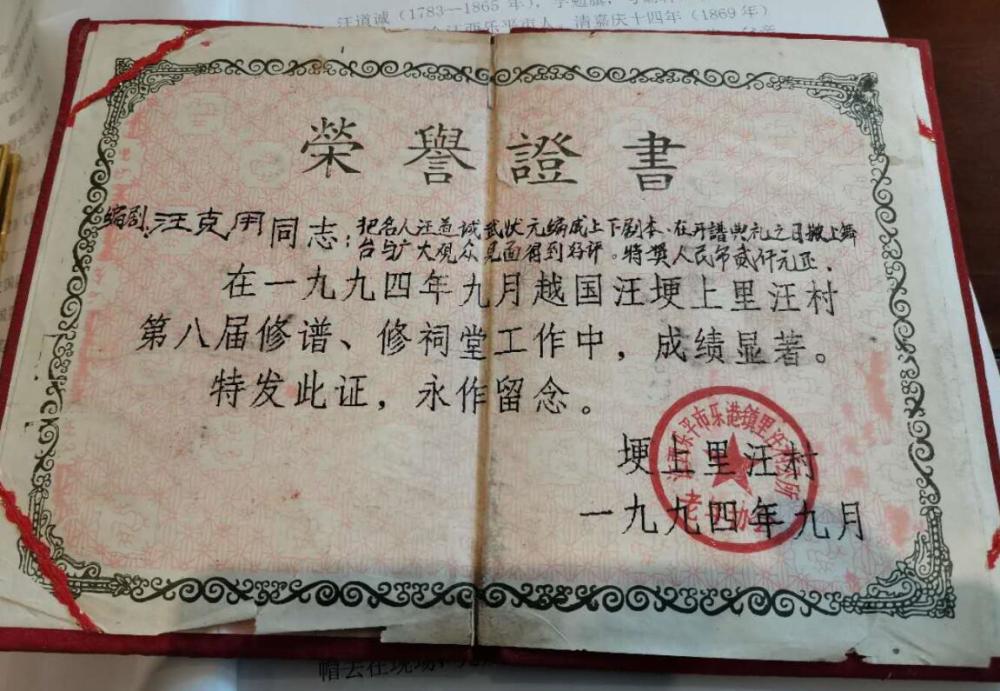 汪道诚（1783—1865年），字
江西乐平市人，清嘉庆十四年（1869年）
榮譽證書
编剧汪克用同志：把名人汪道诚武状元编成上下剧本、在开谱典礼之日搬上舞
台与广大观众见面得到好评。特奖人民币贰仟元正.
在一九九四年九月越国汪埂上里汪村
第八届修谱、修祠堂工作中，成绩显著。
特发此证，永作留念。
江西乐平市乐港镇里汪村
埂上里汪村
一九九四年九月
帽去在现场